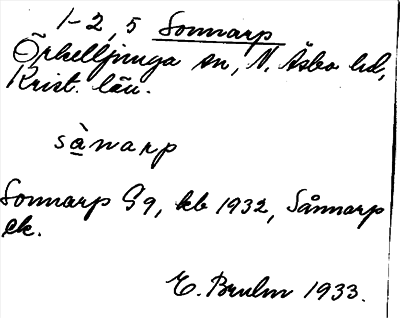 1-2, 5 Sonnarp
Örkelljunga sn, N. Åsbo hd,
Krist. län.
sànarp
Sonnarp G9, kb 1932, Sånnarp
ek.
E. Bruhn 1933.